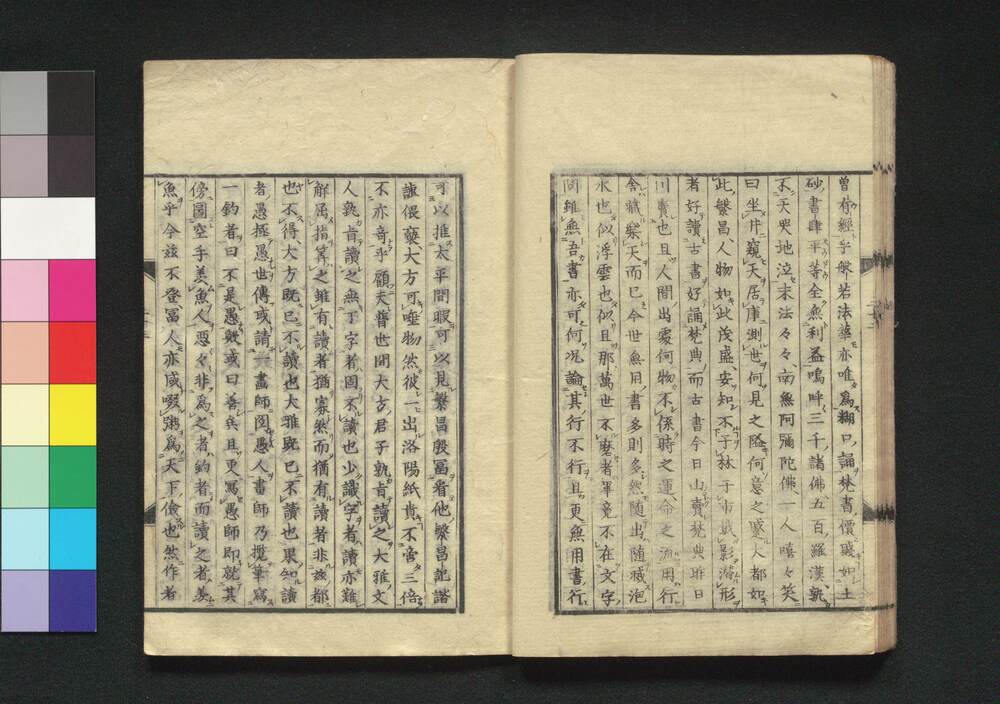 曽存經乎般若法華亦唯爲糊口誦梵書價賤如土
砂書肆平等全無利益嗚呼三千諸佛五百羅漢孰
不天哭地泣末法々々南無阿彌陀佛一人嘻々笑
曰坐井窺天居庫測世何見之隘何意之蹙大都如
此繁昌人物如此茂盛安知不于林于市戢影潜形
者好讀古書好誦梵典而古書今日山賣梵典昨日
川賣也且人間出處何物不係時之運命之流用行
舍藏樂天而已今世無用書多則多然随出随藏泡
水也似浮雲也似且那萬世不磨者畢竟不在文字
間雖無吾書亦可何况論其行不行且更無用書行
可以推太平間暇可以見繁昌殷冨看他繁昌記諧
謔偎褻大方可唾物然彼一出洛陽紙貴不啻三倍
不亦竒乎顧夫普世間大方君子孰肯讀之大雅文
人孰肯讀之無丁字者固不讀也少識字者讀亦難
解屈指算之雖有讀者猶寡然而猶有讀者非玆都
也不得大方既已不讀也大雅既已不讀也果知讀
者愚極愚世傳或請一畫師圖愚人畫師乃攬筆寫
一釣者曰不是愚歟或曰善矣且更寫愚師即就其
傍圖空手羨魚人惡々非爲之者釣者而讀之者羨
魚乎今玆不登冨人亦咸啜粥爲天下儉也然作者